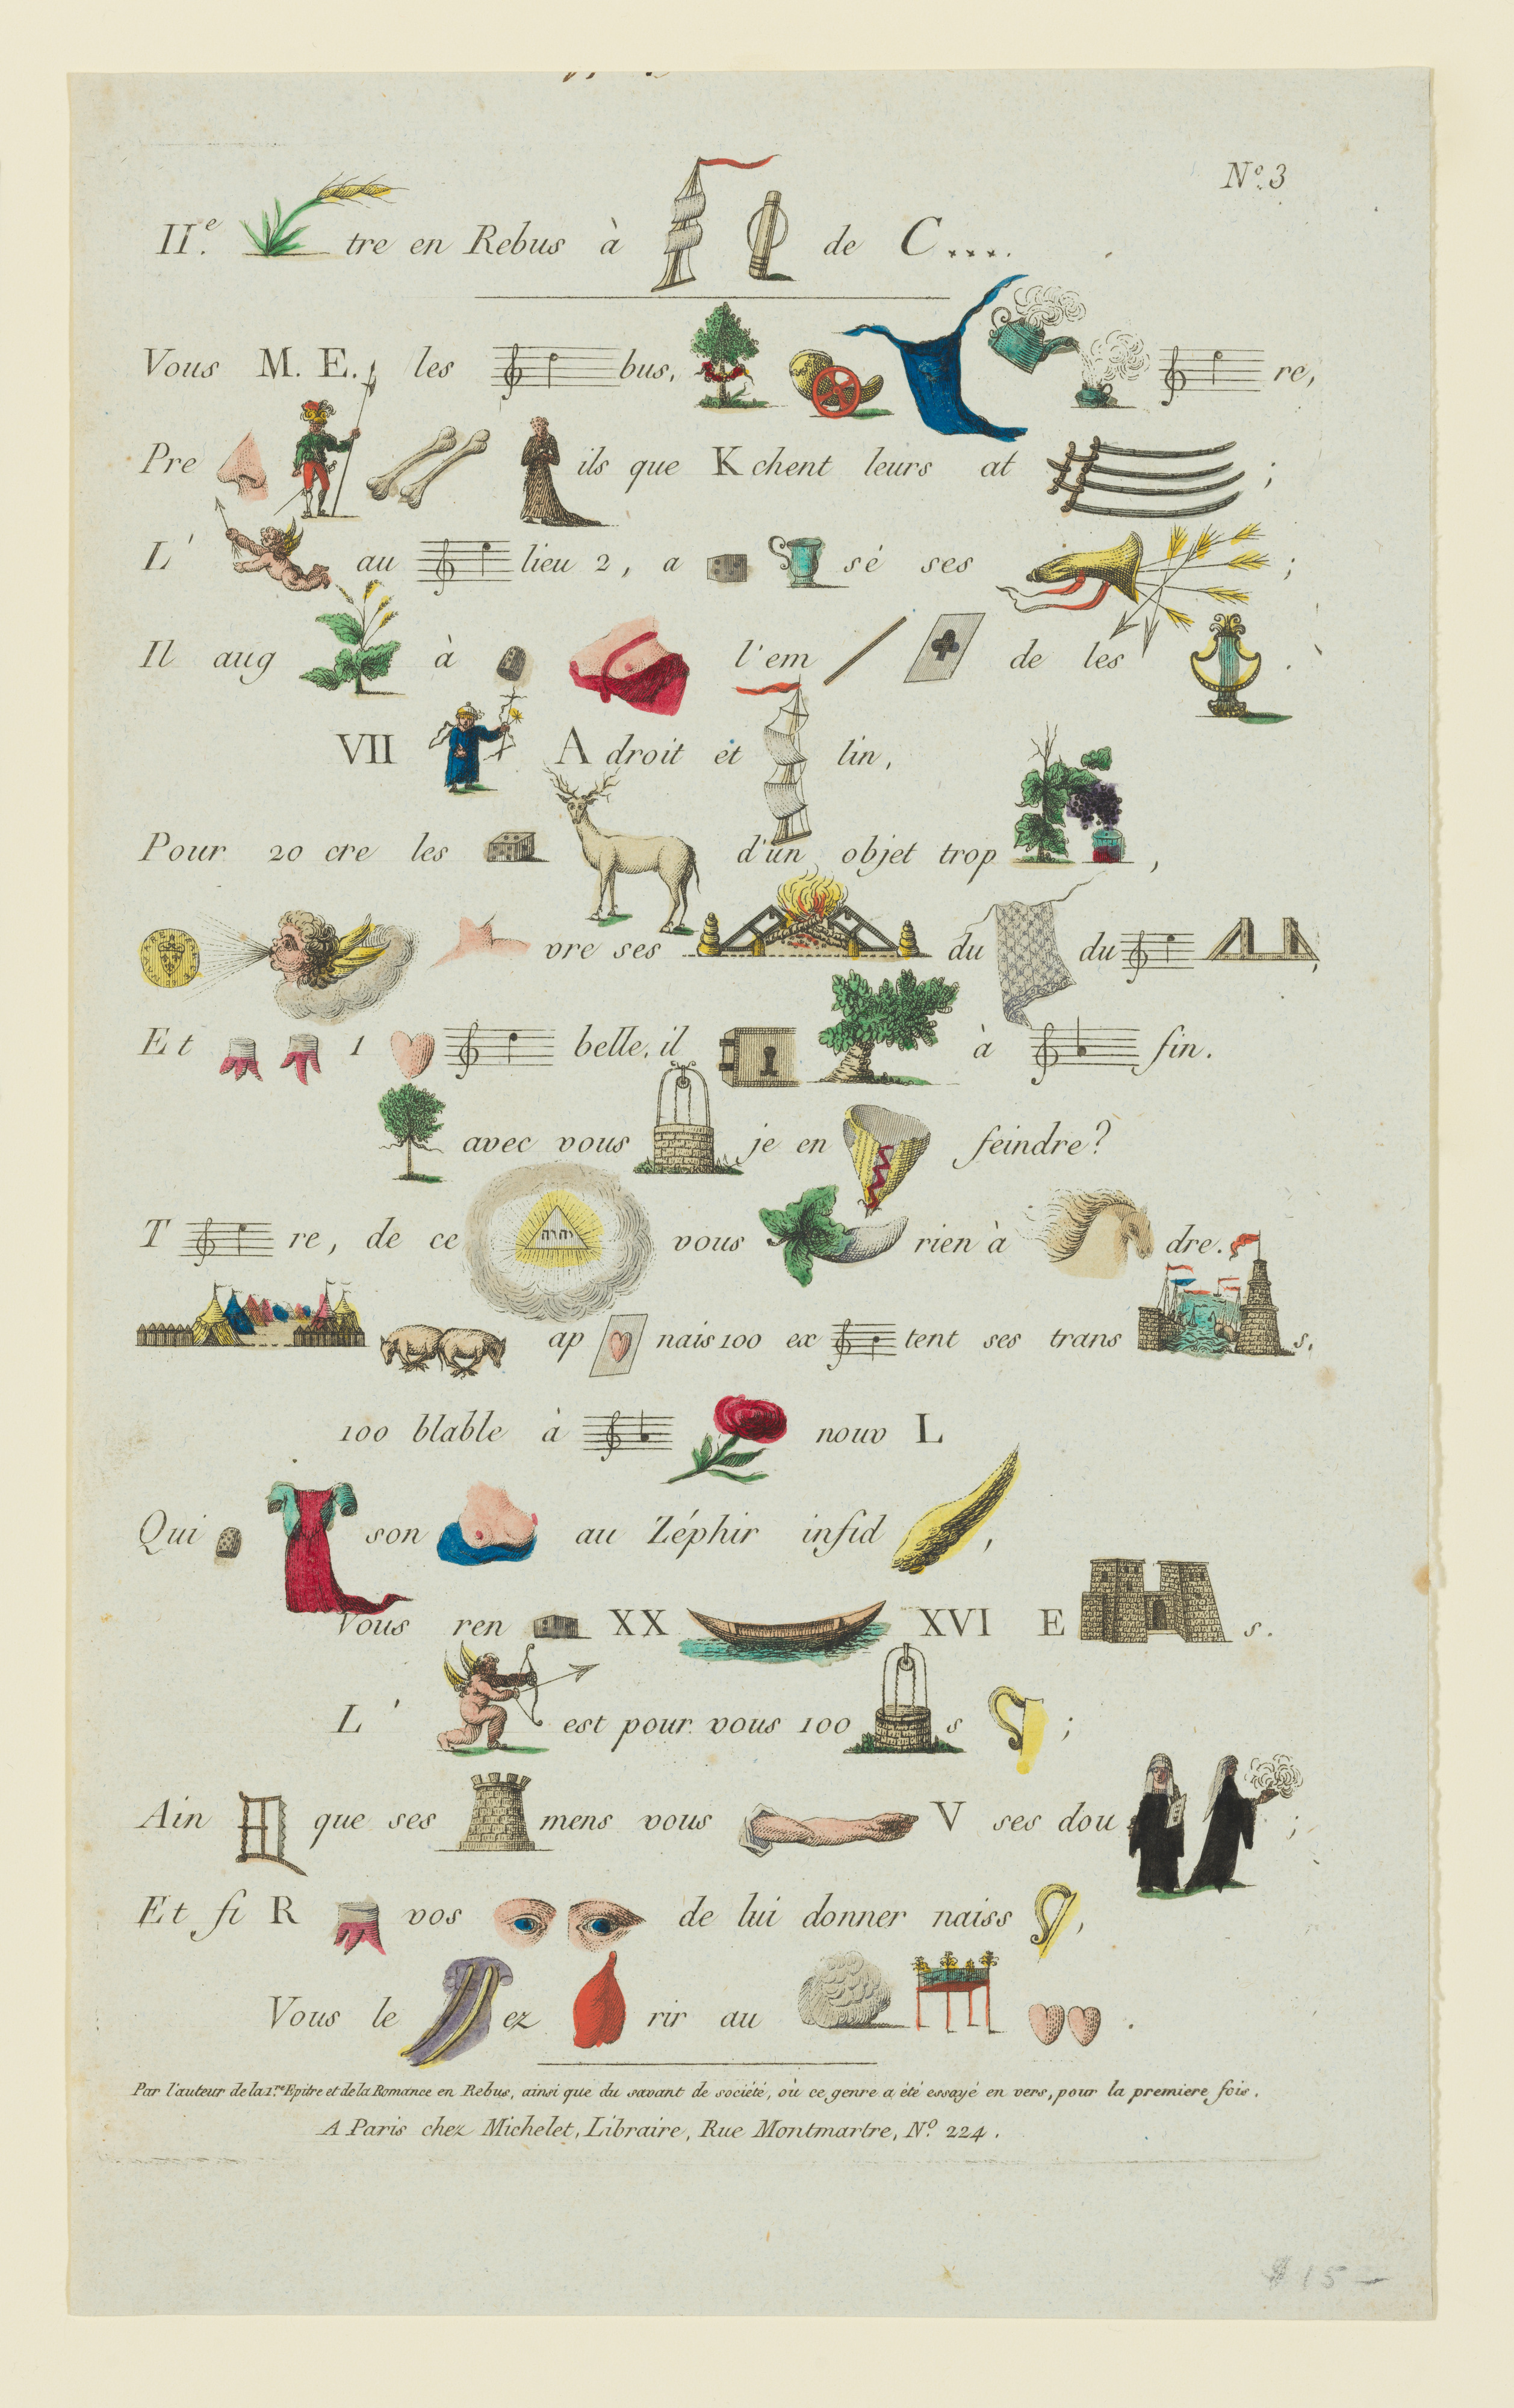 N.º 3
II.e tre en Rebus à de C....
Vous M. E. les bus, re,
Pre ils que K chent leurs at ;
L' au lieu 2, a sé ses ;
Il aug à l'em de les .
VII A droit et lin,
Pour 20 cre les d'un objet trop ,
vre ses du du ,
Et 1 belle, il à fin.
avec vous je en feindre?
T re, de ce יהוה vous rien à dre.
ap nais 100 ex tent ses trans s.
100 blable à nouv L
Qui son au Zéphir infid ,
Vous ren XX XVI E s.
L' est pour vous 100 s ;
Ain que ses mens vous V ses dou ;
Et fi R vos de lui donner naiss ,
Vous le ez rir au .
Par l'auteur de la 1.re Epitre et de la Romance en Rebus, ainsi que du savant de société, où ce genre a été essayé en vers, pour la premiere fois.
A Paris chez Michelet, Libraire, Rue Montmartre, N.º 224.
$15-